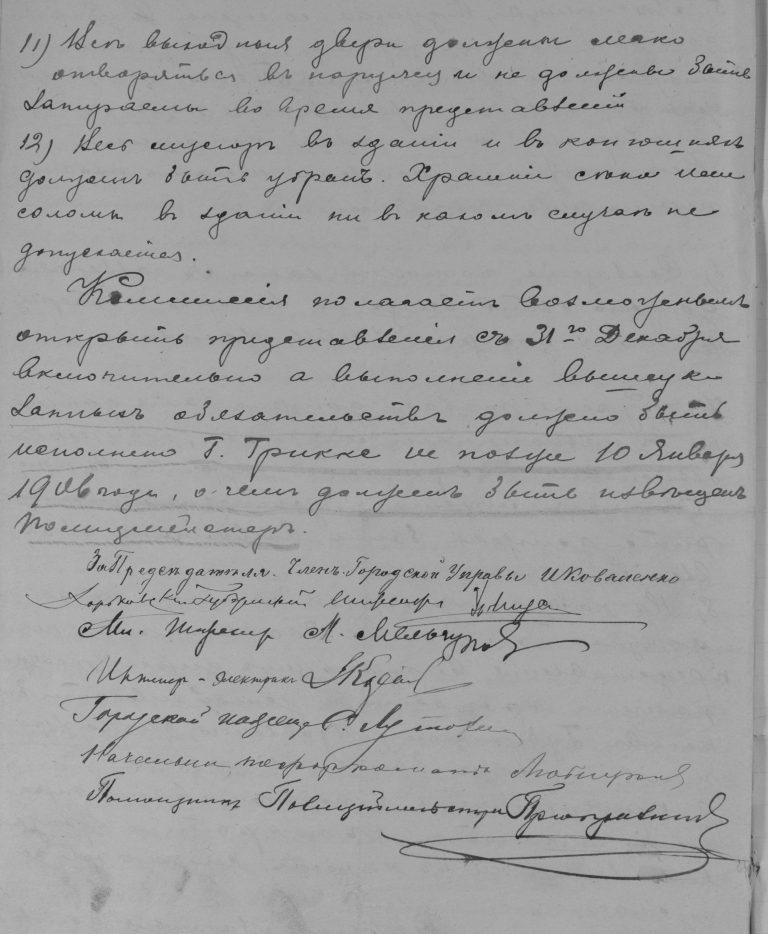 11) Все выходныя двери должны легко
отворяться въ наружу и не должны быть
запираемы во время представленій
12) Весь мусоръ въ зданіи и въ конюшняхъ
долженъ быть убранъ. Храненіе сѣна или
соломы въ зданіи ни въ какомъ случаѣ не
допускается.
Коммиссія полагаетъ возможнымъ
открыть представленія съ 31го Декабря
включительно а выполненіе вышеука
занныхъ обязательствъ должно быть
исполнено Г. Трикке не позже 10 Января
1906 года, о чемъ долженъ быть извѣщенъ
Полицмейстеръ.
За Предсѣдателя. Членъ Городской Управы И Коваленко
Харьковскій Губернскій Инженеръ
Мл. Инженеръ М.
Инженеръ - электрикъ
Городской
Начальникъ команды
Помощникъ Полицмейстера